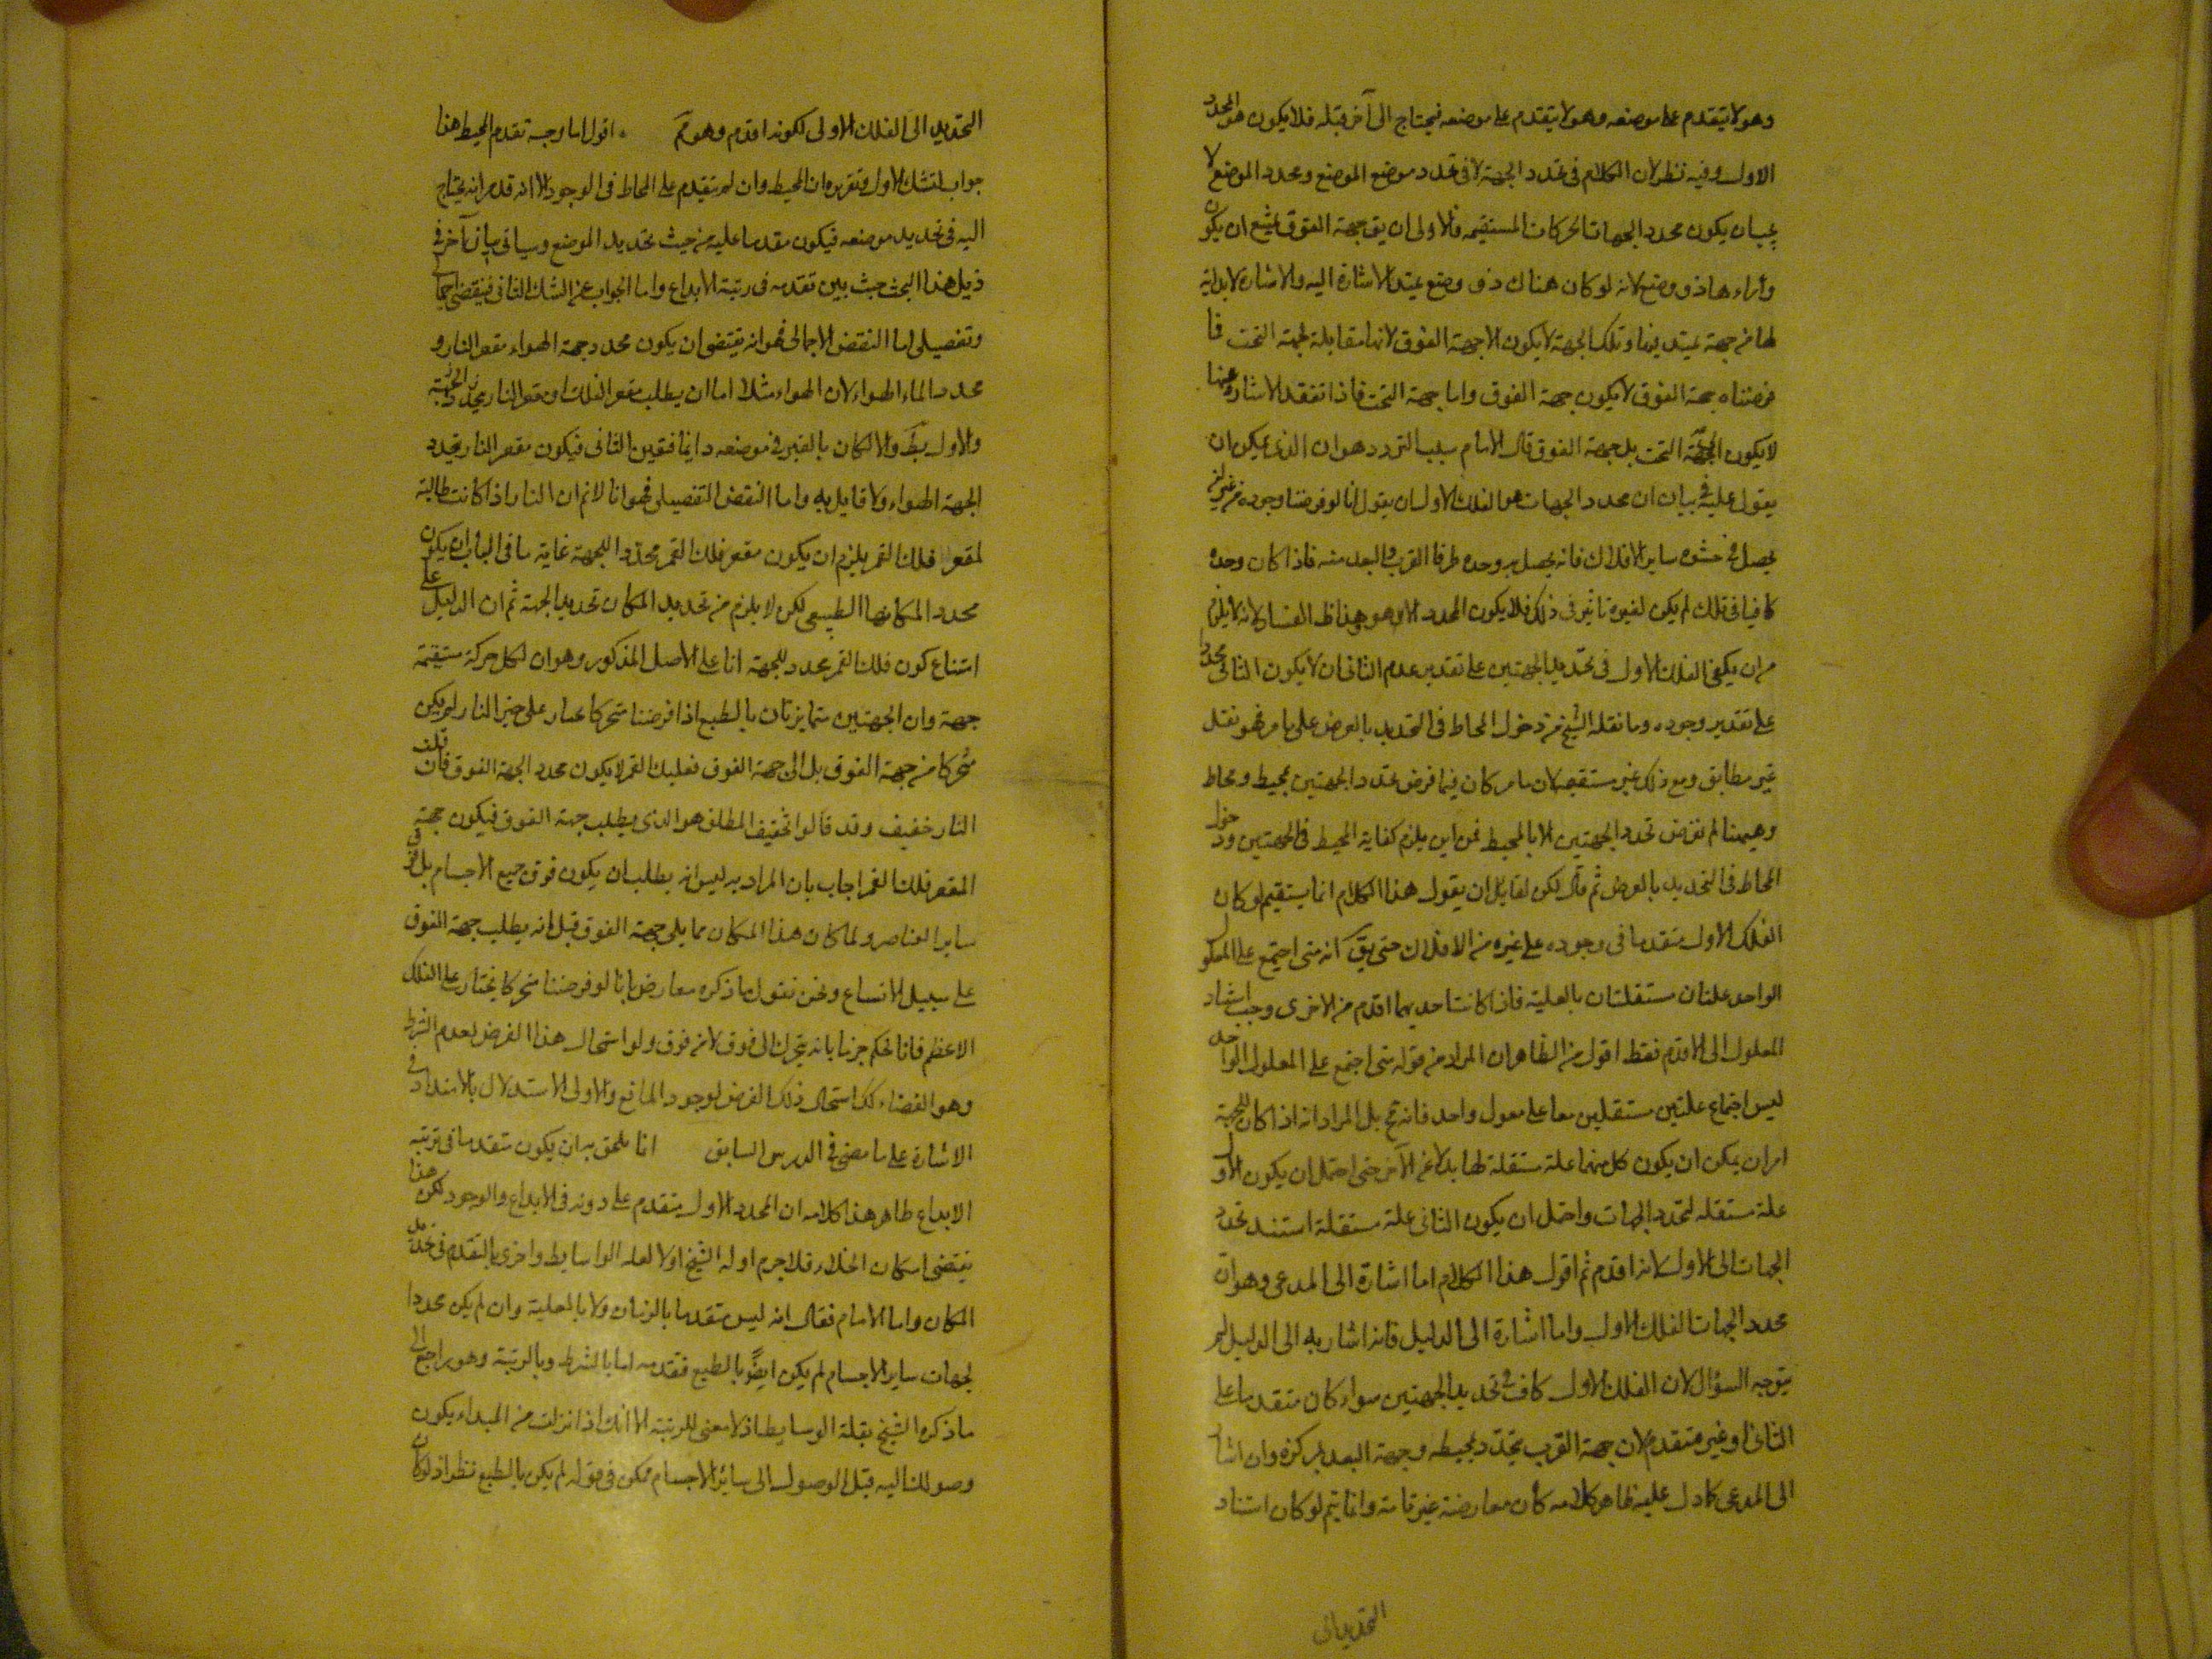 وهو لا يتقدم على موضعه وهو لا يتقدم على موضعه فيحتاج الى آخر قبله فلا يكون هو المحدد
الاول وفيه نظر لان الكلام فى تحدد الجهة لا فى تحدد موضع الموضع ومحدد الموضع لا
يجب ان يكون محدد الجهات الحركات المستقيمة فالاولى ان يق جهة الفوق يمتنع ان يكون
وراءها ذو وضع لانه لو كان هناك ذو وضع يمتد الاشارة اليه والاشارة لا بد
لها من جهة يمتد فيها وتلك الجهة لا يكون الا جهة الفوق لانها مقابلة لجهة التحت فما
فرضناه جهة الفوق لا يكون جهة الفوق واما جهة التحت فاذا تفقد الاشارة عنها
لا يكون الى جهة التحت بل جهة الفوق قال الامام سبب التردد هو ان الذى يمكن ان
يعول عليه فى بيان ان محدد الجهات هو الفلك الاول ان يقول انا لو فرضنا وجوده من غير ان
يحصل فى حشوه ساير الافلاك فانه يحصل به وحده طرفا القرب والبعد منه فاذا كان وحده
كافيا فى ذلك لم يكن لغيره تاثير فى ذلك فلا يكون المحدد الا هو وهذا ظ الفساد لانه لا يلزم
من ان يكفى الفلك الاول فى تحديد الجهتين على تقدير عدم الثانى ان لا يكون الثانى محددا
على تقدير وجوده وما نقله الشيخ من دخول المحاط فى التحديد بالعرض على ما مر فهو نقل
غير مطابق ومع ذلك غير مستقيم لان ما مر كان فيما فرض تحدد الجهتين بمحيط ومحاط
وههنا لم نفرض تحدد الجهتين الا بالمحيط فمن اين يلزم كفاية المحيط فى الجهتين ودخول
المحاط فى التحديد بالعرض ثم قال لكن لقايل ان يقول هذا الكلام انما يستقيم لو كان
الفلك الاول متقدما فى وجوده على غيره من الافلاك حتى يق انه متى اجتمع على المعلول
الواحد علتان مستقلتان بالعلية فاذا كانت احديهما اقدم من الاخرى وجب استناد
المعلول الى الاقدم فقط اقول من الظاهر ان المراد من قوله متى اجتمع على المعلول الواحد
ليس اجتماع علتين مستقلين معا على معول واحد فانه مح بل المراد انه اذا كان للجهة
امران يمكن ان يكون كل منهما علة مستقلة لها بدلا عن الآخر حتى احتمل ان يكون الاول
علة مستقلة لتحدد الجهات واحتمل ان يكون الثانى علة مستقلة استند تحدد
الجهات الى الاول لانه اقدم ثم اقول هذا الكلام اما اشارة الى المدعى وهو ان
محدد الجهات الفلك الاول واما اشارة الى الدليل فانه اشار به الى الدليل لم
يتوجه السؤال لان الفلك الاول كاف فى تحديد الجهتين سواء كان متقدما على
الثانى او غير متقدم لان جهة القرب يتحدد بمحيطه وجهة البعد بمركزه وان اشار
الى المدعى كما دل عليه ظاهر كلامه كان معارضة غير تامة وانما يتم لو كان استناد
التحديد الى
التحديد الى الفلك الاول لكونه اقدم وهو مم . اقول اما وجه تقدم المحيط هذا
جواب لشك الاول وتقريره ان المحيط وان لم يتقدم على المحاط فى الوجود الا انه قد مر انه يحتاج
اليه فى تحديد موضعه فيكون مقدما عليه من حيث تحديد الموضع وسياتى بيان آخر فى
ذيل هذا البحث حيث بين تقدمه فى رتبة الابداع واما الجواب عن الشك الثانى فنقض اجمالى
وتفصيلى اما النقض الاجمالى فهو انه يقتضى ان يكون محدد جهة الهواء مقعر النار و
محدد الماء الهواء لان الهواء مثلا اما ان يطلب مقعر الفلك او مقعر النار
والاول بط والا لكان بالقسر فى موضعه دايما فتعين الثانى فيكون مقعر النار يحدد
الجهة الهواء ولا قايل به واما النقض التفصيلى فهو انا لا نم ان النار اذا كانت طالبة
لمقعر فلك القمر يلزم ان يكون مقعر فلك القمر محددا للجهة غاية ما فى الباب ان يكون
محدد المكانها الطبيعى لكن لا يلزم من تحديد المكان تحديد الجهة ثم ان الدليل على
امتناع كون فلك القمر محدد للجهة انا على الاصل المذكور وهو ان لكل حركة مستقيمة
جهة وان الجهتين متمايزتان بالطبع اذا فرضنا متحركا عبار على حيز النار لم يكن
متحركا من جهة الفوق بل الى جهة الفوق ففلك القمر لا يكون محدد الجهة الفوق فان قلت
النار خفيف وقد قالوا الخفيف المطلق هو الذى يطلب جهة الفوق فيكون جهة
المقعر فلك القمر اجاب بان المراد به ليس انه يطلب ان يكون فوق جميع الاجسام بل فوق
ساير العناصر ولما كان هذا المكان مما يلى جهة الفوق قيل انه يطلب جهة الفوق
على سبيل الاتساع ونحن نقول ما ذكره معارض بانا لو فرضنا متحركا يجتاز على الفلك
الاعظم فانا نحكم جزما بانه يتحرك الى فوق لا من فوق ولو استحال هذا الفرض لعدم الشرط
وهو الفضاء كك استحال ذلك الفرض لوجود المانع والاولى الاستدلال بالامتداد فى
الاشارة على ما مضى فى الدرس السابق انا ملحق به ان يكون متقدما فى ترتيبه
الابداع ظاهر هذا كلامه ان المحدد الاول متقدم على دونه فى الابداع والوجود لكن هذا
يقتضى امكان الخلاء فلا جرم اوله الشيخ اولا لعله الوسايط واخرى بالتقدم فى تحديد
المكان واما الامام فقال انه ليس متقدما بالزمان ولا بالعلية وان لم يكن محددا
لجهات ساير الاجسام لم يكن ايضا بالطبع فتقدمه اما بالشرط وبالرتبة وهو راجع الى
ما ذكره الشيخ بقلة الوسايط اذ لا معنى للرتبة الا انك اذا نزلت من المبداء يكون
وصولك اليه قبل الوصول الى سائر الاجسام ممكن فى قوله لم يكن بالطبع نظر اذ لو كان